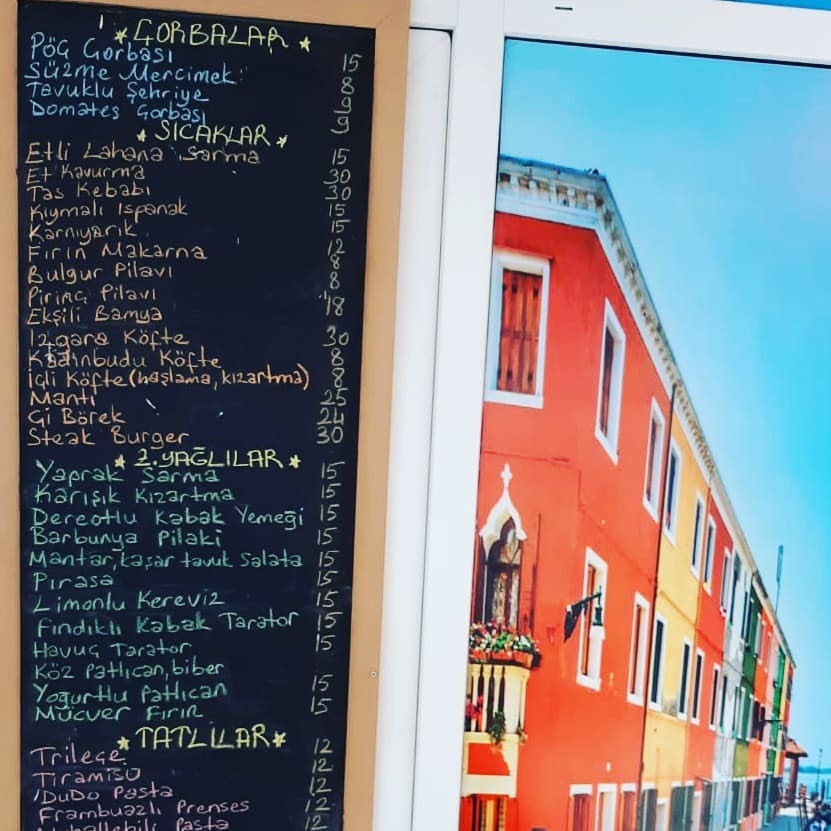 ÇORBALAR
Pöç Çorbası 15
Süzme Mercimek 8
Tavuklu Şehriye 9
Domates Çorbası 9
SICAKLAR
Etli Lahana Sarma 15
Et Kavurma 30
Tas Kebabı 30
Kıymalı Ispanak 15
Karnıyarık 15
Fırın Makarna 12
Bulgur Pilavı 8
Pirinç Pilavı 8
Ekşili Bamya 18
Izgara Köfte 30
Kadınbudu Köfte 8
içli Köfte (haşlama, kızartma) 8
Mantı 25
Çi Börek 24
Steak Burger 30
Z.YAĞLILAR
Yaprak Sarma 15
Karışık Kızartma 15
Dereotlu Kabak Yemeği 15
Barbunya Pilaki 15
Mantar, kaşar tavuk Salata 15
Pırasa 15
Limonlu Kereviz 15
Fındıklı Kabak Tarator 15
Havuç Tarator 15
Köz Patlıcan, biber
Yoğurtlu Patlıcan 15
Mücver Fırın 15
TATLILAR
Trileçe 12
Tiramisu 12
DuDo Pasta 12
Frambuazlı Prenses 12
Pasta 12